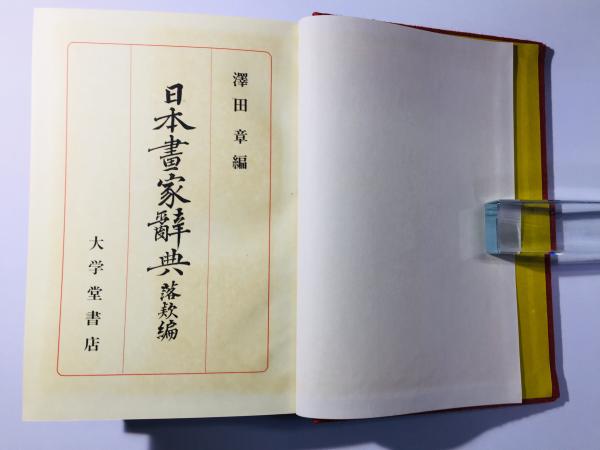 澤田章編
日本畫家辭典落款編
大学堂書店